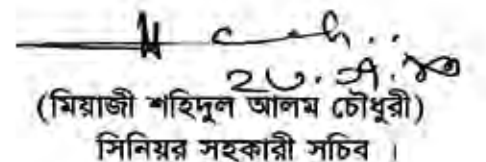 (মিয়াজী শহিদুল আলম চৌধুরী)
সিনিয়র সহকারী সচিব ।